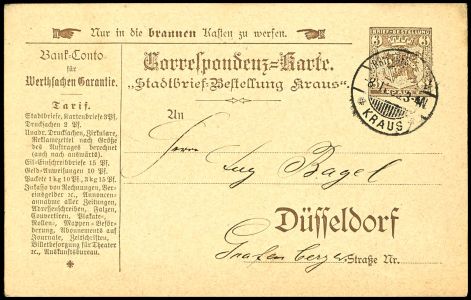 Nur in die braunen Kasten zu werfen.
BRIEF-BESTELLUNG
3 3
Bank-Conto
für
Werthsachen Garantie.
Tarif.
Stadtbriefe, Kartenbriefe 3 Pf.
Drucksachen 2 Pf.
Unadr. Drucksachen, Zirkulare,
Reklamezettel nach Größe
des Auftrages berechnet
(auch nach auswärts).
Eil-Einschreibbriefe 15 Pf.
Geld-Anweisungen 10 Pf.
Packete 1 kg 10 Pf., 3 kg 15 Pf.
Inkasso von Rechnungen, Ver-
einsgelder &c., Annoncen-
annahme aller Zeitungen,
Adressenschreiben, Falzen,
Couvertiren, Plakate-,
Rollen-, Mappen-Beför-
derung, Abonnements auf
Journale, Zeitschriften,
Billetbesorgung für Theater
&c., Auskunftsbureau.
Correspondenz-Karte.
„Stadtbrief-Bestellung Kraus".
KRAUS
An
Herrn Aug Bagel
Düsseldorf
Grafenberger Straße Nr.